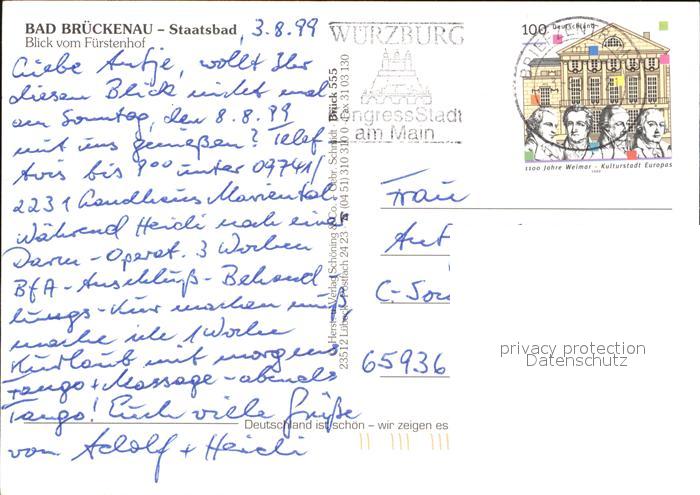 BAD BRÜCKENAU – Staatsbad, 3.8.99
Blick vom Fürstenhof
Liebe Antje, wollt Ihr
diesen Blick nicht mal
am Sonntag, den 8.8.99
mit uns genießen? Telef.
Avis bis 9⁰⁰ unter 09741/
2231 Landhaus Mariental
Während Heidi nach einer
Darm-Operat. 3 Wochen
BfA-Anschluß-Behand
lungs-Kur machen muß
mache ich 1 Woche
Kurlaub mit morgens
Fango + Massage - abends
Tango! Euch viele Grüße
von Adolf + Heidi
Deutschland ist schön – wir zeigen es
Brück 555
Verlag Schöning & Co. + Gebr. Schmidt
23512 Lübeck, Postfach 24 23
(04 51) 310 310
Fax 31 03 130
WÜRZBURG
CongressStadt
am Main
100
Deutschland
BRIEFZENTRUM
1100 Jahre Weimar - Kulturstadt Europas
1999
Frau
Ant
65936
privacy protection
Datenschutz